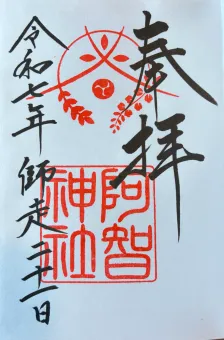 奉拝
阿智
神社
令和七年 師走二十一日